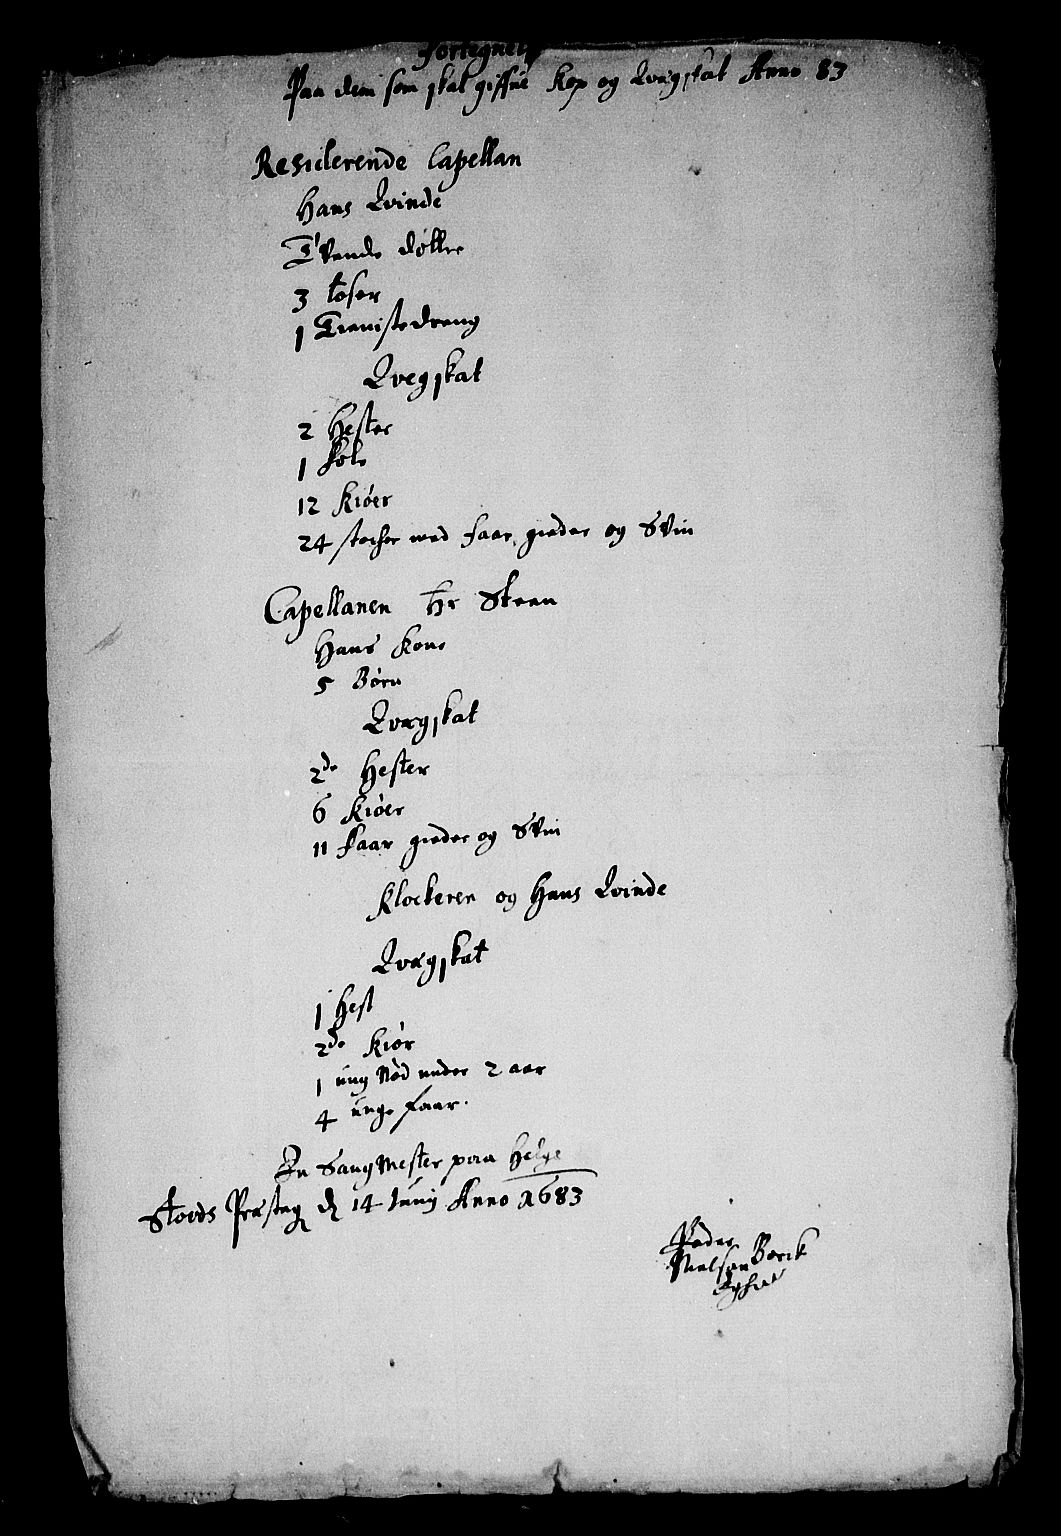 Fortegnelse
Paa dem som skal giffue Kop og Qvegskat Anno 83
Residerende Capellan
Hans Qvinde
Tvende døttre
3 tøser
1 Tienistedreng
Qvegskat
2 Hester
1 Føle
12 Kiøer
24 støcher med faar, gieder og Svin
Capellanen Hr Steen
Hans Kone
5 Børn
Qvægskat
2de Hester
6 Kiøer
11 Faar gieder og Svin
Klockeren og Hans Qvinde
Qvægskat
1 Hest
2de Kiør
1 ung Nød under 2 aar
4 unge faar.
En Sangmester paa Helge
Stods Præsteg d 14 Junij Anno 1683
Peder
Nielsøn Borck